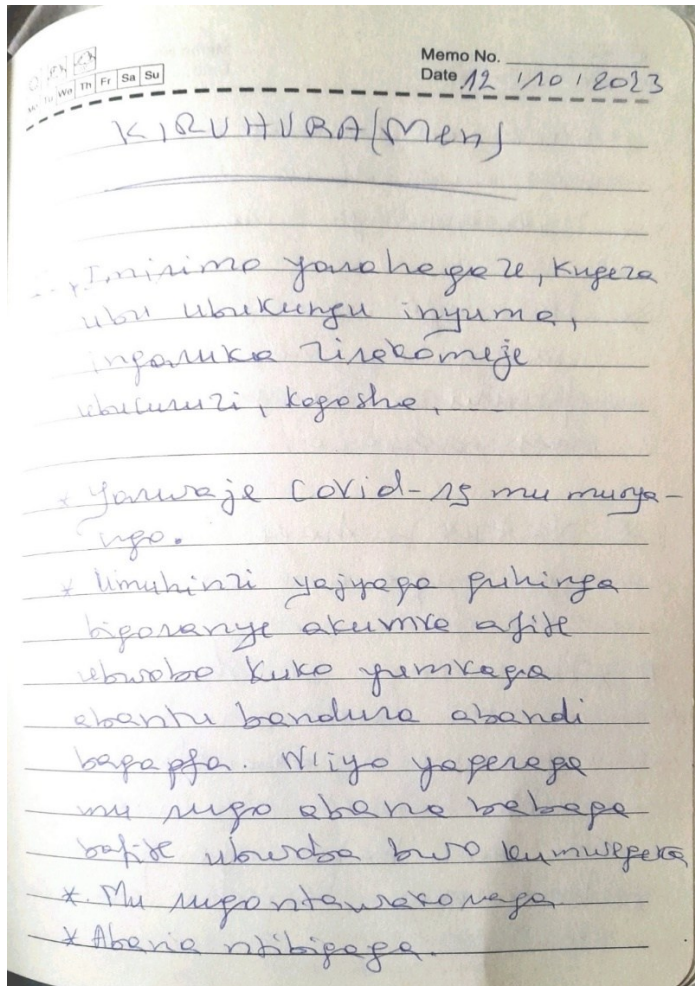 Memo No.
Mo Tu We Th Fr Sa Su
Date 12 / 10 / 2023
KIRUHURA (Men)
Imirimo yarahagaze, Kugeza
ubu ubukungu inyuma,
ingaruka zirakomeje
ubucuruzi, Kogosha,
* Yarwaje Covid-19 mu murya-
ngo.
* Umuhinzi yajyaga guhinga
bigoranye akumva afite
ubwoba kuko yumvaga
abantu bandura abandi
bagapfa. Niyo yageraga
mu rugo abana babaga
bafite ubwoba bwo kumwegera
* Mu rugo ntawakoraga
* Abana ntibigaga.